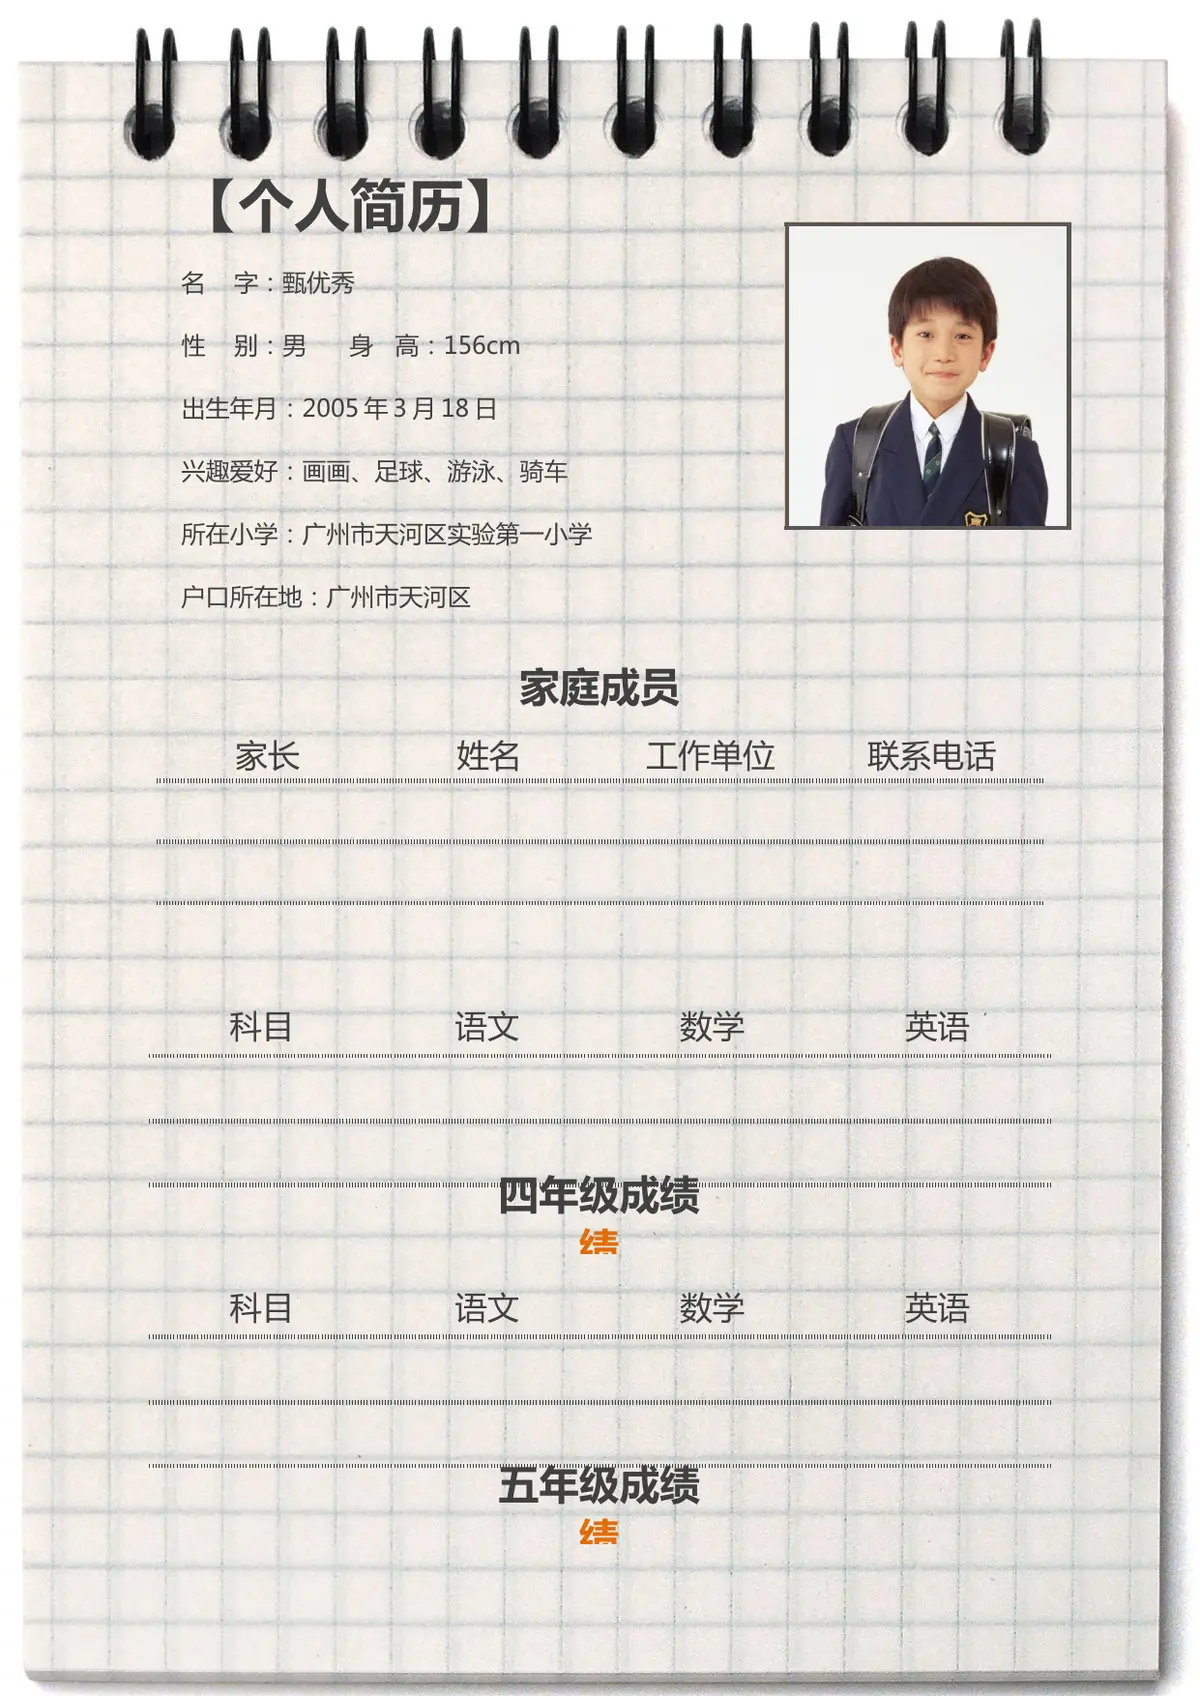 【个人简历】
名 字：甄优秀
性 别：男 身 高：156cm
出生年月：2005年3月18日
兴趣爱好：画画、足球、游泳、骑车
所在小学：广州市天河区实验第一小学
户口所在地：广州市天河区
家庭成员
家长 姓名 工作单位 联系电话
科目 语文 数学 英语
四年级成绩
绩
科目 语文 数学 英语
五年级成绩
绩